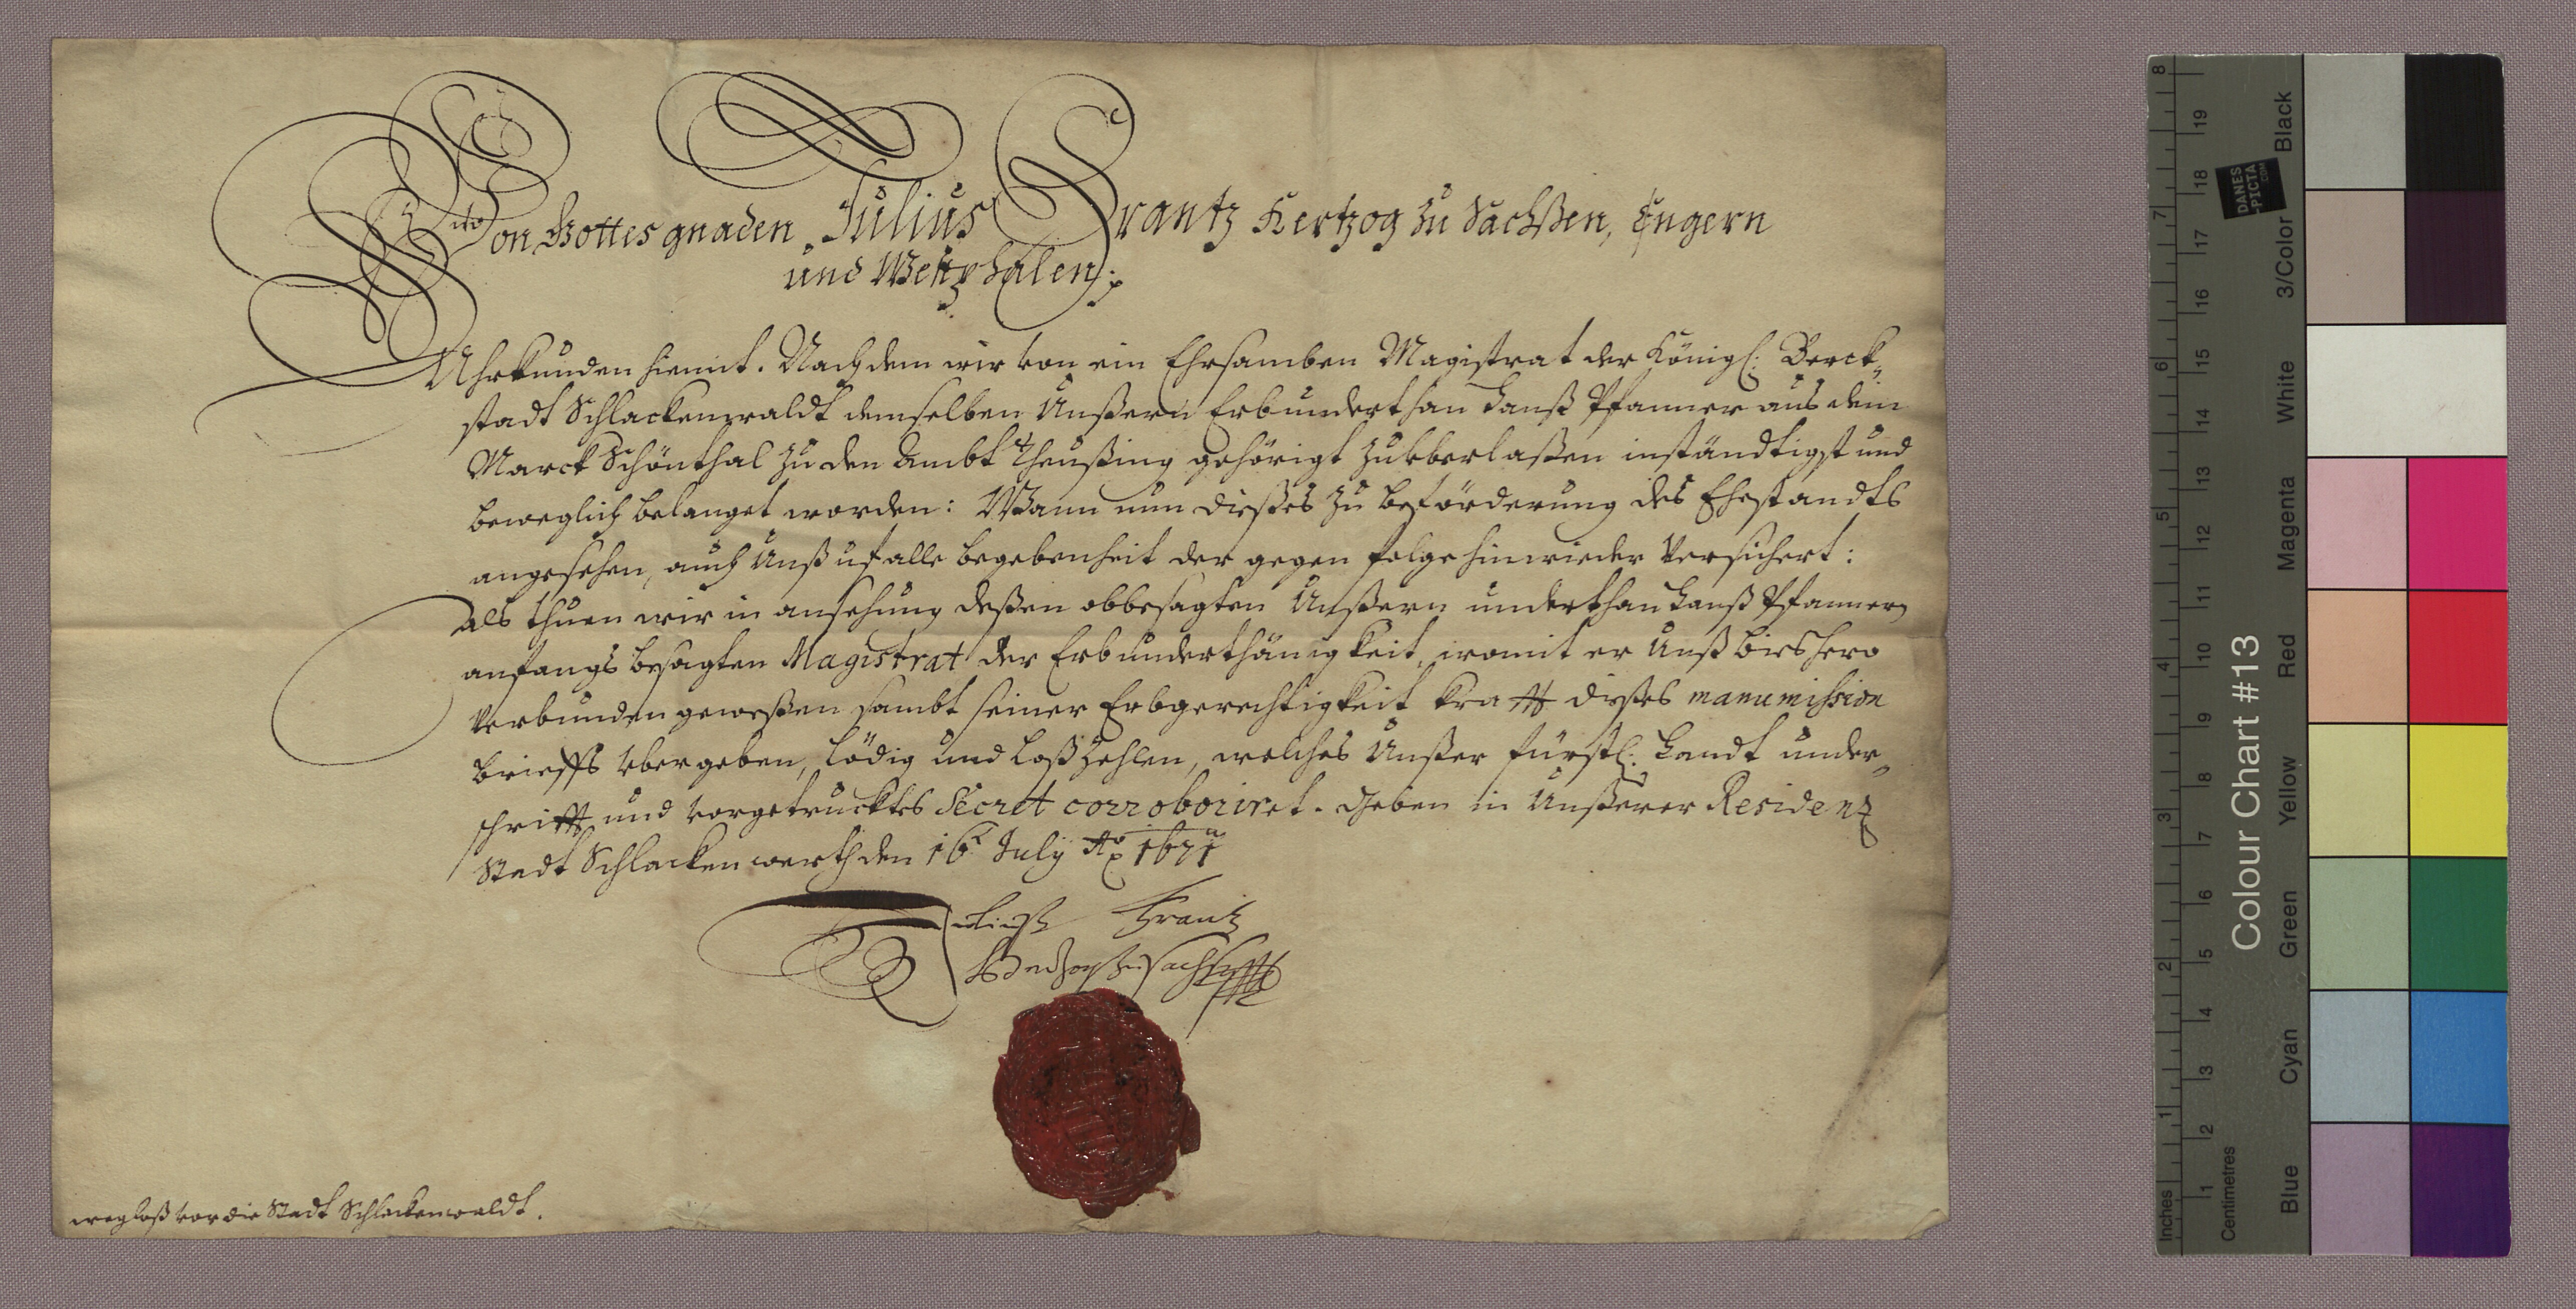 Von Gottes gnaden Julius Frantz Hertzog zu Sachßen, Engern
und Westphalen;
Uhrkunden hiemit. Nachdem wir von ein Ehrsamben Magistrat der Königl: Berck„
stadt Schlackenwaldt demselben Unßern Erbunderthan Hanß Pfanner aus dem
Marck Schönthal zu den Ambt Theußing gehörigt zu vberlaßen inständtigst und
beweglich belanget worden: Wann nun dießes zu beförderung des Ehestandts
angesehen, auch Unß uf alle begebenheit der gegen folge hinwieder versichert:
Als thuen wir in ansehung deßen obbesagten Unßern underthan Hanß Pfannern
anfangs besagten Magistrat der Erbunderthänigkeit, womit er Unß bieshero
verbunden geweßen sambt seiner Erbgerechtigkeit krafft dießes manumission
brieffs vbergeben, lödig und loßzehlen, welches Unßer fürstl: Handt under„
schrifft und vorgetrucktes Secret corroboriret. Geben in Unßerer Residentz
Stadt Schlackenwerth den 16t July Ao 1671
Julius Frantz
Hertzog zu Sachsen
wegloß vor die Stadt Schlackenwaldt.
Colour Chart #13
Blue
Cyan
Green
Yellow
Red
Magenta
White
3/Color
Black
Inches
1
2
3
4
5
6
7
8
Centimetres
1
2
3
4
5
6
7
8
9
10
11
12
13
14
15
16
17
18
19
DANES
-PICTA
.COM